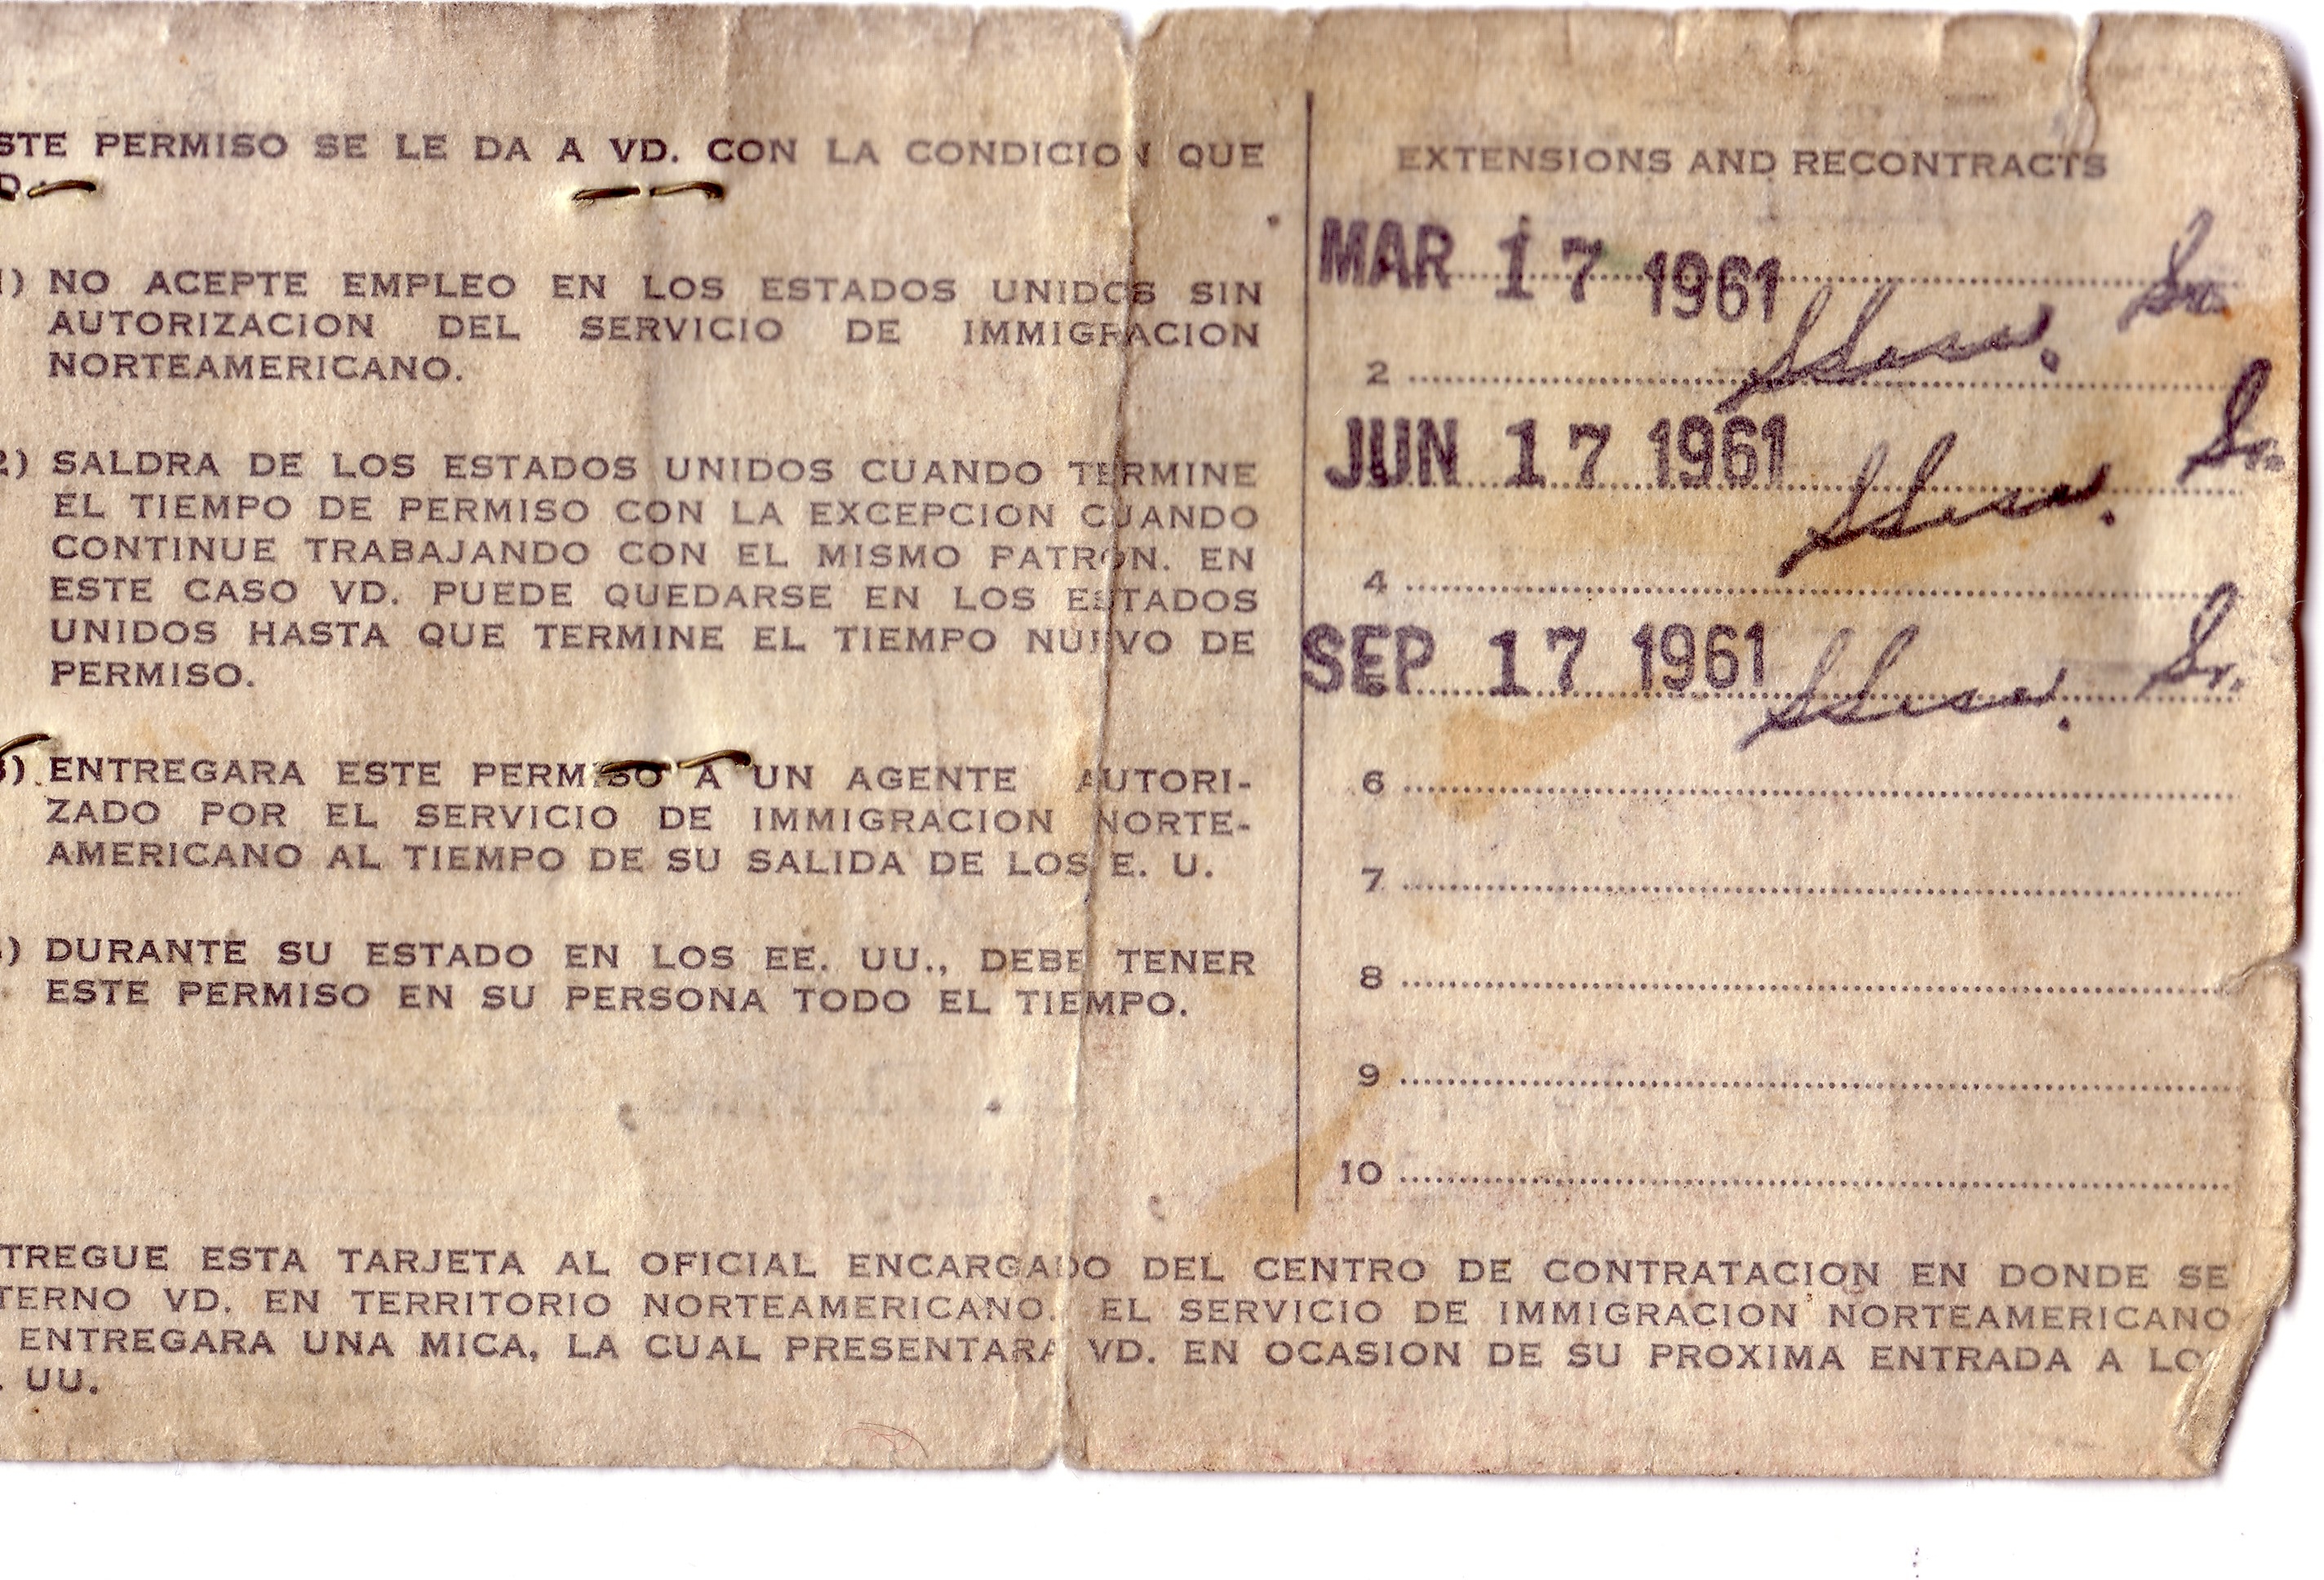 STE PERMISO SE LE DA A VD. CON LA CONDICION QUE
D.
1) NO ACEPTE EMPLEO EN LOS ESTADOS UNIDOS SIN
AUTORIZACION DEL SERVICIO DE IMMIGRACION
NORTEAMERICANO.
2) SALDRA DE LOS ESTADOS UNIDOS CUANDO TERMINE
EL TIEMPO DE PERMISO CON LA EXCEPCION CUANDO
CONTINUE TRABAJANDO CON EL MISMO PATRON. EN
ESTE CASO VD. PUEDE QUEDARSE EN LOS ESTADOS
UNIDOS HASTA QUE TERMINE EL TIEMPO NUEVO DE
PERMISO.
3) ENTREGARA ESTE PERMISO A UN AGENTE AUTORI-
ZADO POR EL SERVICIO DE IMMIGRACION NORTE-
AMERICANO AL TIEMPO DE SU SALIDA DE LOS E. U.
) DURANTE SU ESTADO EN LOS EE. UU., DEBE TENER
ESTE PERMISO EN SU PERSONA TODO EL TIEMPO.
EXTENSIONS AND RECONTRACTS
MAR 17 1961 Sr.
2
JUN 17 1961 Sr.
4
SEP 17 1961 Sr.
6
7
8
9
10
TREGUE ESTA TARJETA AL OFICIAL ENCARGADO DEL CENTRO DE CONTRATACION EN DONDE SE
TERNO VD. EN TERRITORIO NORTEAMERICANO. EL SERVICIO DE IMMIGRACION NORTEAMERICANO
ENTREGARA UNA MICA, LA CUAL PRESENTARA VD. EN OCASION DE SU PROXIMA ENTRADA A LO
. UU.